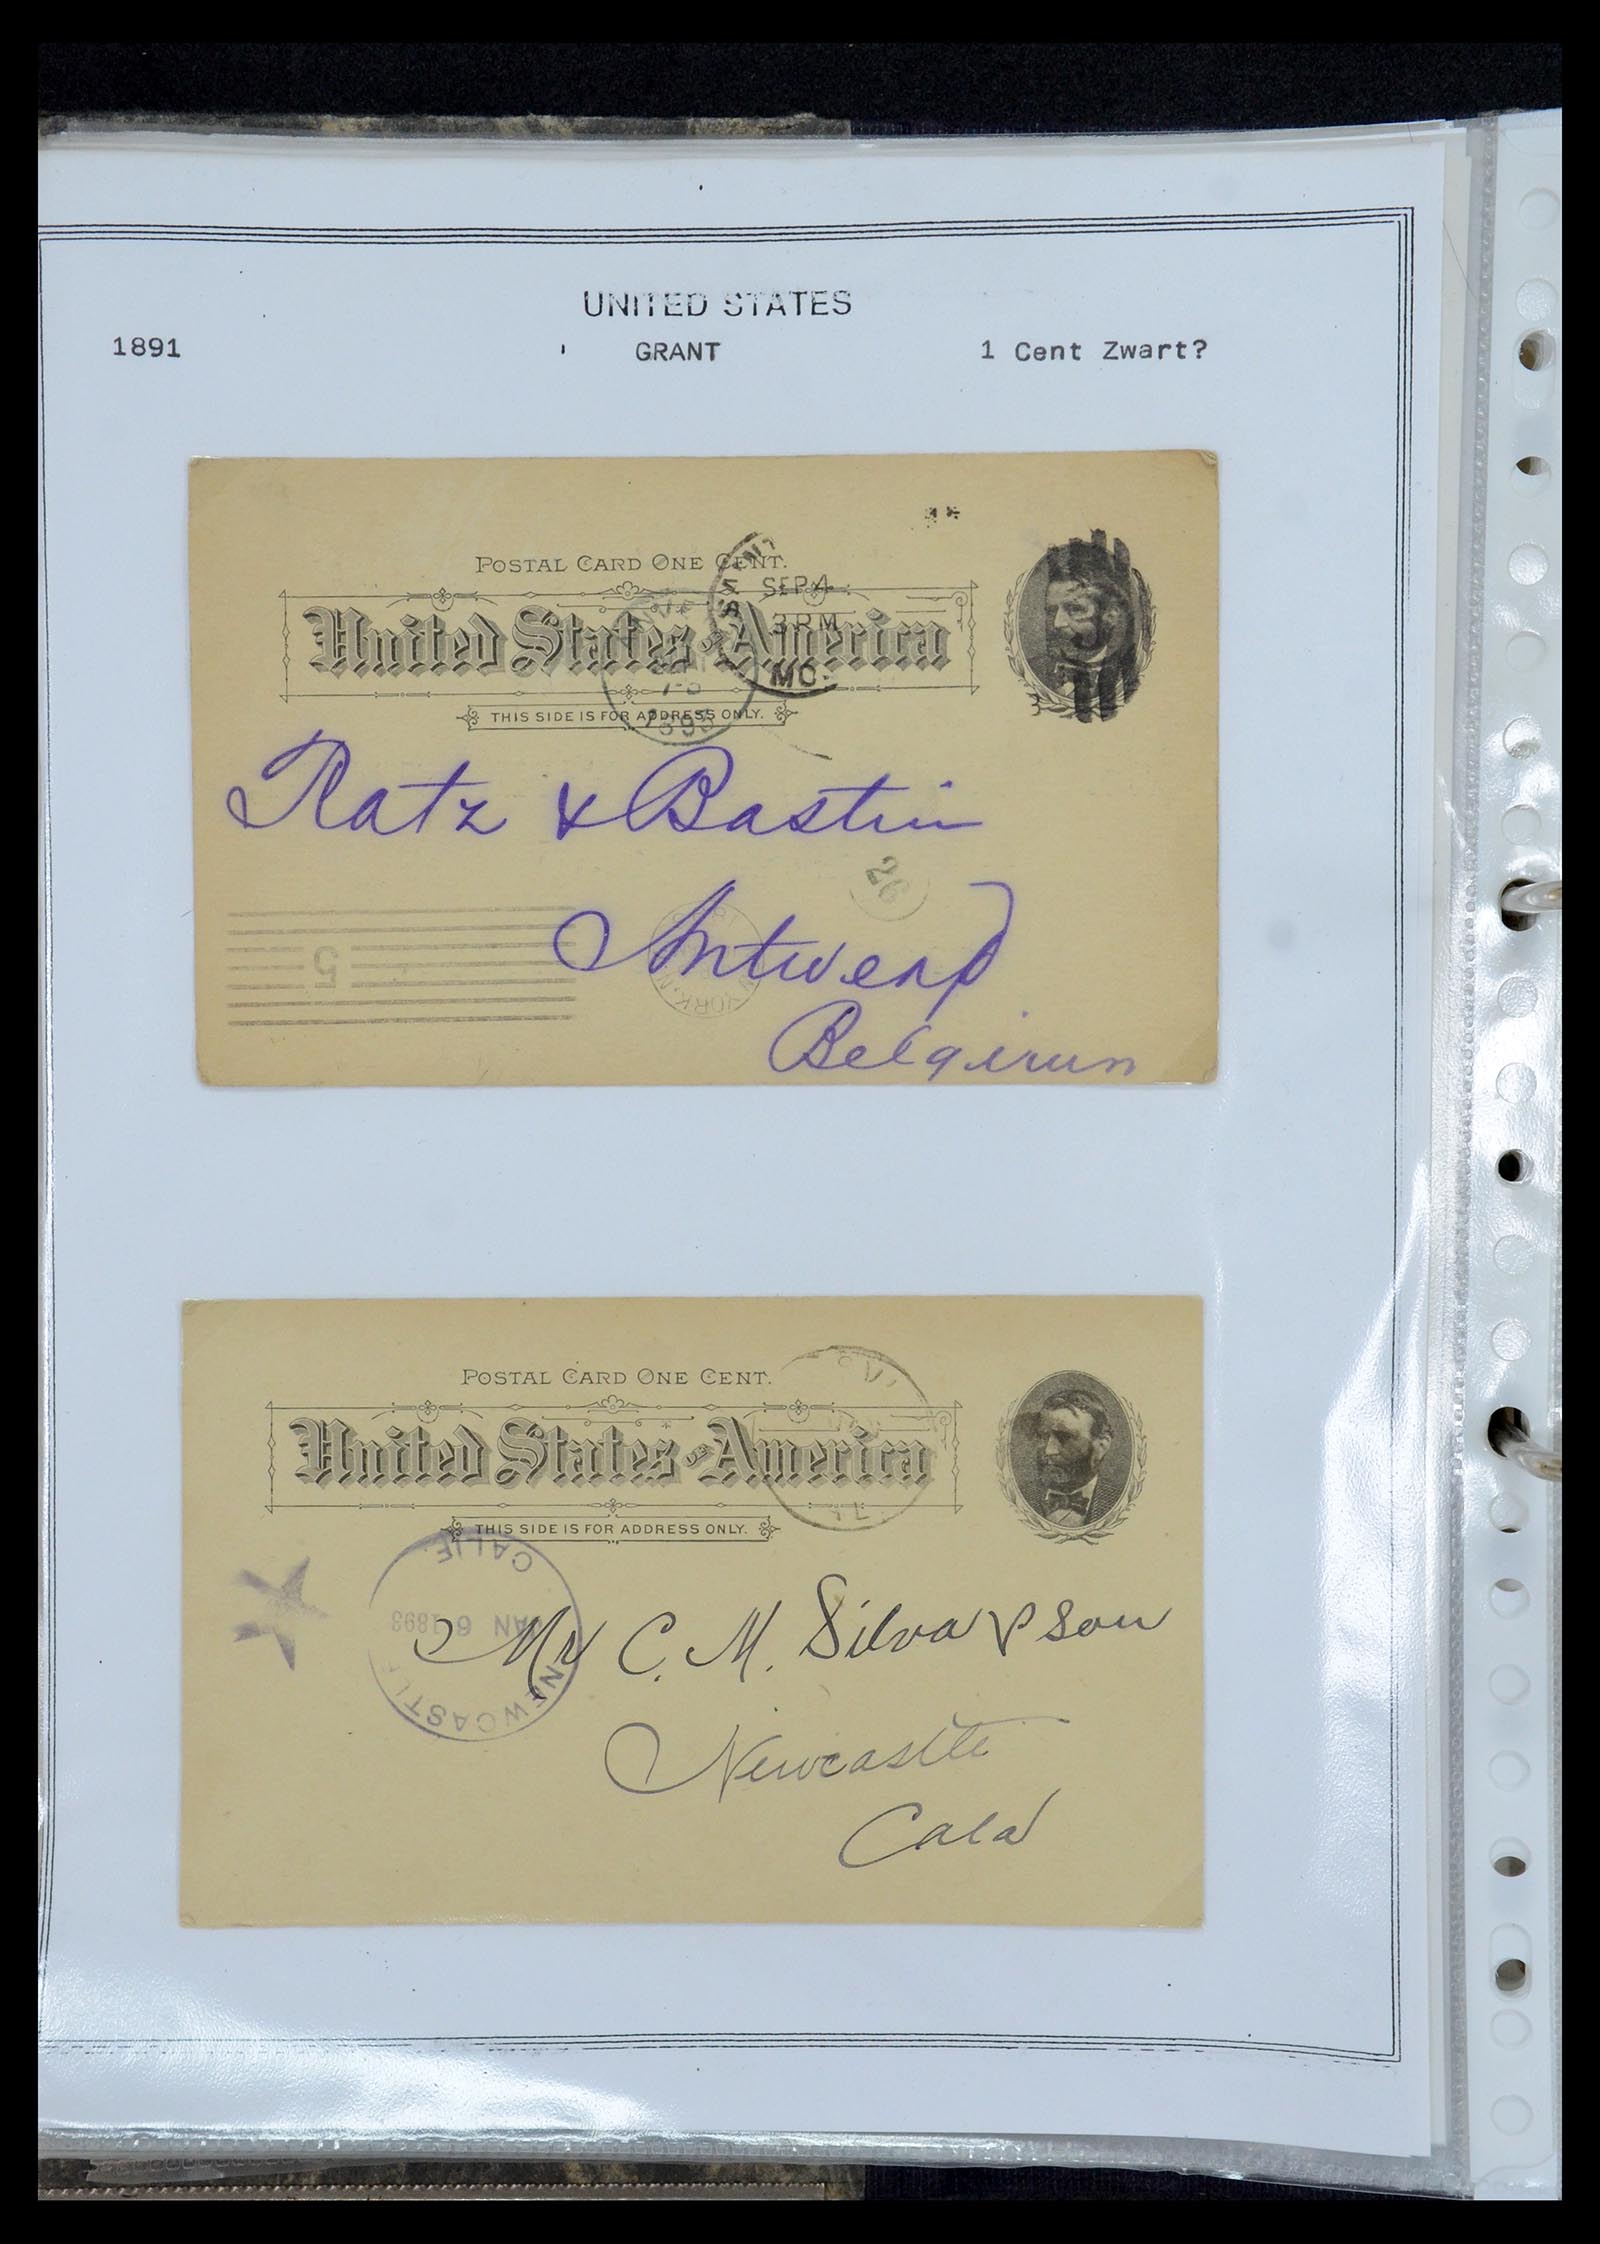 UNITED STATES
1891 GRANT 1 Cent Zwart?
POSTAL CARD ONE CENT.
SEP 4
3 PM
MO.
United States of America
THIS SIDE IS FOR ADDRESS ONLY.
Ratz & Bastin
26
Antwerp
5
Belgium
POSTAL CARD ONE CENT.
United States of America
THIS SIDE IS FOR ADDRESS ONLY.
CALIF.
JAN 6 1893
NEWCASTL
Mr C. M. Silva & Son
Newcastle
Cala